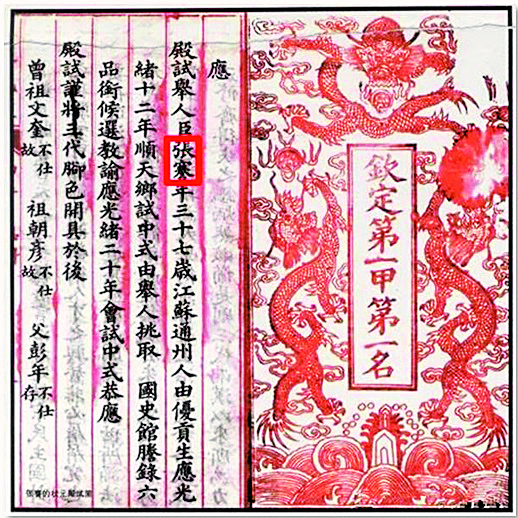 欽定第一甲第一名
應
殿試舉人臣張謇年三十七歲江蘇通州人由優貢生應光
緒十二年順天鄉試中式由舉人挑取 國史館謄錄六
品銜候選教諭應光緒二十年會試中式恭應
殿試謹將三代腳色開具於後
曾祖文奎不仕故 祖朝彥不仕故 父彭年不仕存